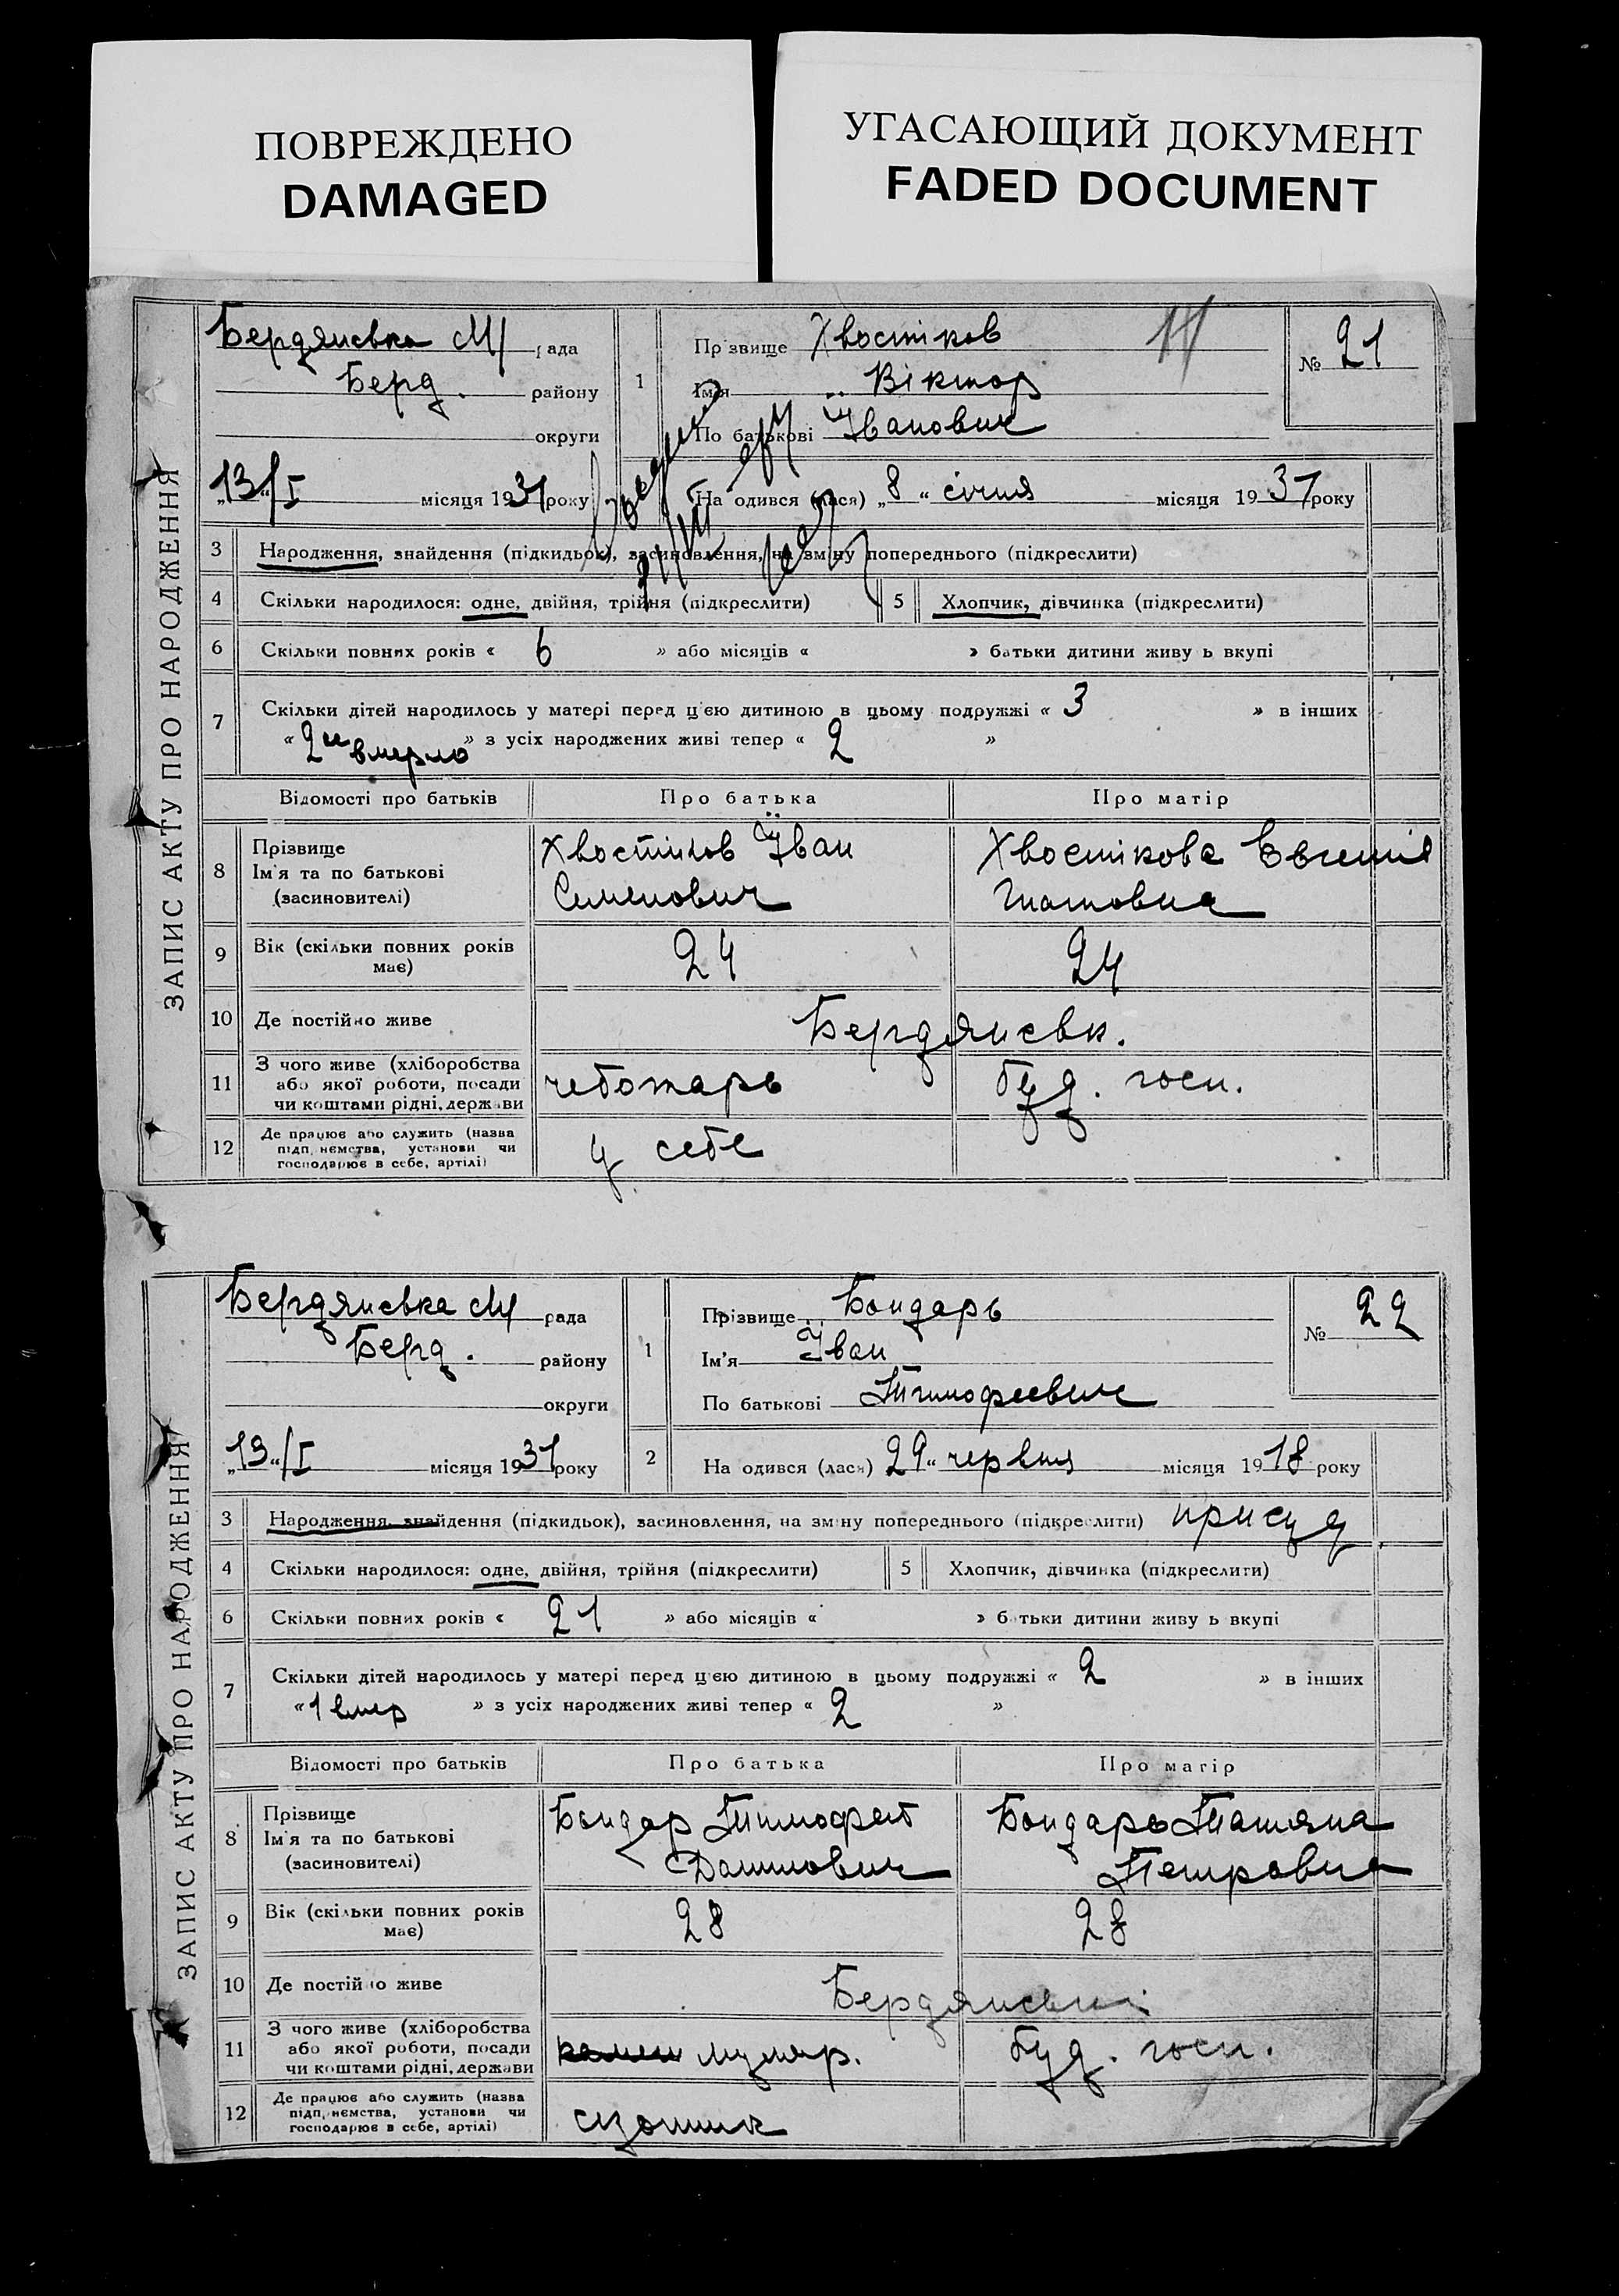 ПОВРЕЖДЕНО
DAMAGED
УГАСАЮЩИЙ ДОКУМЕНТ
FADED DOCUMENT
ЗАПИС АКТУ ПРО НАРОДЖЕННЯ
Бердянська М/ рада
Берд. району
округи
1
Прізвище Хвостіков
Ім'я Віктор
По батькові Їванович
№ 21
„13“/I місяця 1931 року
На одився (лася) „8“ січня місяця 1931 року
3 Народження, знайдення (підкидьок), засиновлення, на зміну попереднього (підкреслити)
4 Скільки народилося: одне, двійня, трійня (підкреслити) 5 Хлопчик, дівчинка (підкреслити)
6 Скільки повних років « 6 » або місяців « » батьки дитини живу ь вкупі
7 Скільки дітей народилось у матері перед цією дитиною в цьому подружжі « 3 » в інших
« 2 вмерло » з усіх народжених живі тепер « 2 »
Відомості про батьків Про батька Про матір
8 Прізвище
Ім'я та по батькові
(засиновителі)
Хвостіков Їван
Семенович
Хвостікова Евгенія
Гнатовна
9 Вік (скільки повних років має) 24 24
10 Де постійно живе Бердянськ.
11 З чого живе (хліборобства
або якої роботи, посади
чи коштами рідні, держави
чеботарь буд. госп.
12 Де працює або служить (назва
підп, немства, установи чи
господарює в себе, артілі)
у себе
ЗАПИС АКТУ ПРО НАРОДЖЕННЯ
Бердянська М/ рада
Берд. району
округи
1
Прізвище Бондарь
Ім'я Їван
По батькові Тимофеевич
№ 22
„13“/I місяця 1931 року
2 На одився (лася) 29“ червня місяця 1918 року
3 Народження, знайдення (підкидьок), засиновлення, на зміну попереднього (підкреслити) присуд
4 Скільки народилося: одне, двійня, трійня (підкреслити) 5 Хлопчик, дівчинка (підкреслити)
6 Скільки повних років « 21 » або місяців « » батьки дитини живу ь вкупі
7 Скільки дітей народилось у матері перед цією дитиною в цьому подружжі « 2 » в інших
« 1 вмер » з усіх народжених живі тепер « 2 »
Відомості про батьків Про батька Про матір
8 Прізвище
Ім'я та по батькові
(засиновителі)
Бондар Тимофей
Данилович
Бондарь Татяна
Петровна
9 Вік (скільки повних років має) 28 28
10 Де постійно живе Бердянськ
11 З чого живе (хліборобства
або якої роботи, посади
чи коштами рідні, держави
муляр. буд. госп.
12 Де працює або служить (назва
підп, немства, установи чи
господарює в себе, артілі)